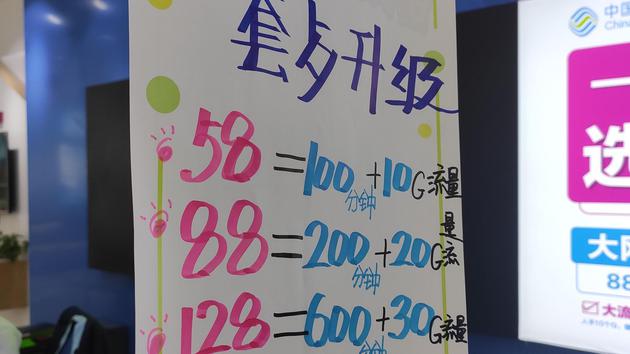 套歺升级
58=100分钟+10G流量
88=200分钟+20G流量
128=600分钟+30G流量
中国
China
一
选
大
88
大流